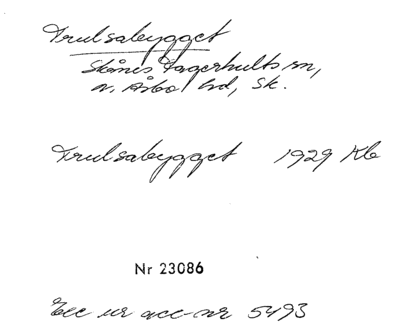 Trulsabygget
Skånes Fagerhults sn,
N. Åsbo hd, Sk.
Trulsabygget 1929 Kb
Nr 23086
Exc ur acc-nr 5493